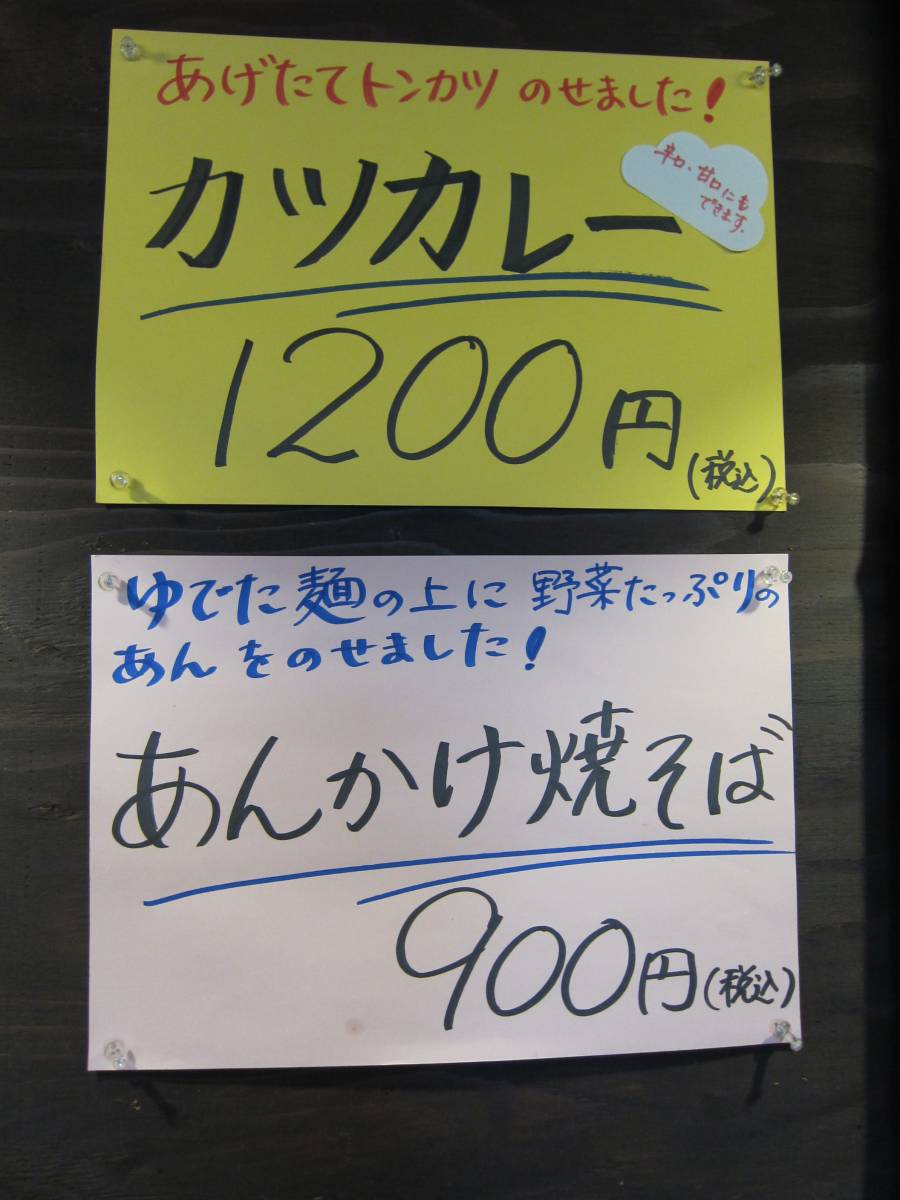 あげたてトンカツ のせました!
カツカレー
辛口、甘口にも
できます。
1200円
(税込)
ゆでた麺の上に 野菜たっぷりの
あんをのせました!
あんかけ焼そば
900円(税込)